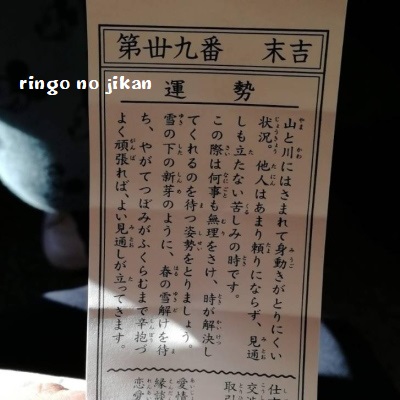 第丗九番 末吉
ringo no jikan
運勢
山と川にはさまれて身動きがとりにくい
状況。他人はあまり頼りにならず、見通
しも立たない苦しみの時です。
この際は何事も無理をさけ、時が解決し
てくれるのを待つ姿勢をとりましょう。
雪の下の新芽のように、春の雪解けを待
ち、やがてつぼみがふくらむまで辛抱づ
よく頑張れば、よい見通しが立ってきます。
仕
交
取引
愛情
縁談
恋愛